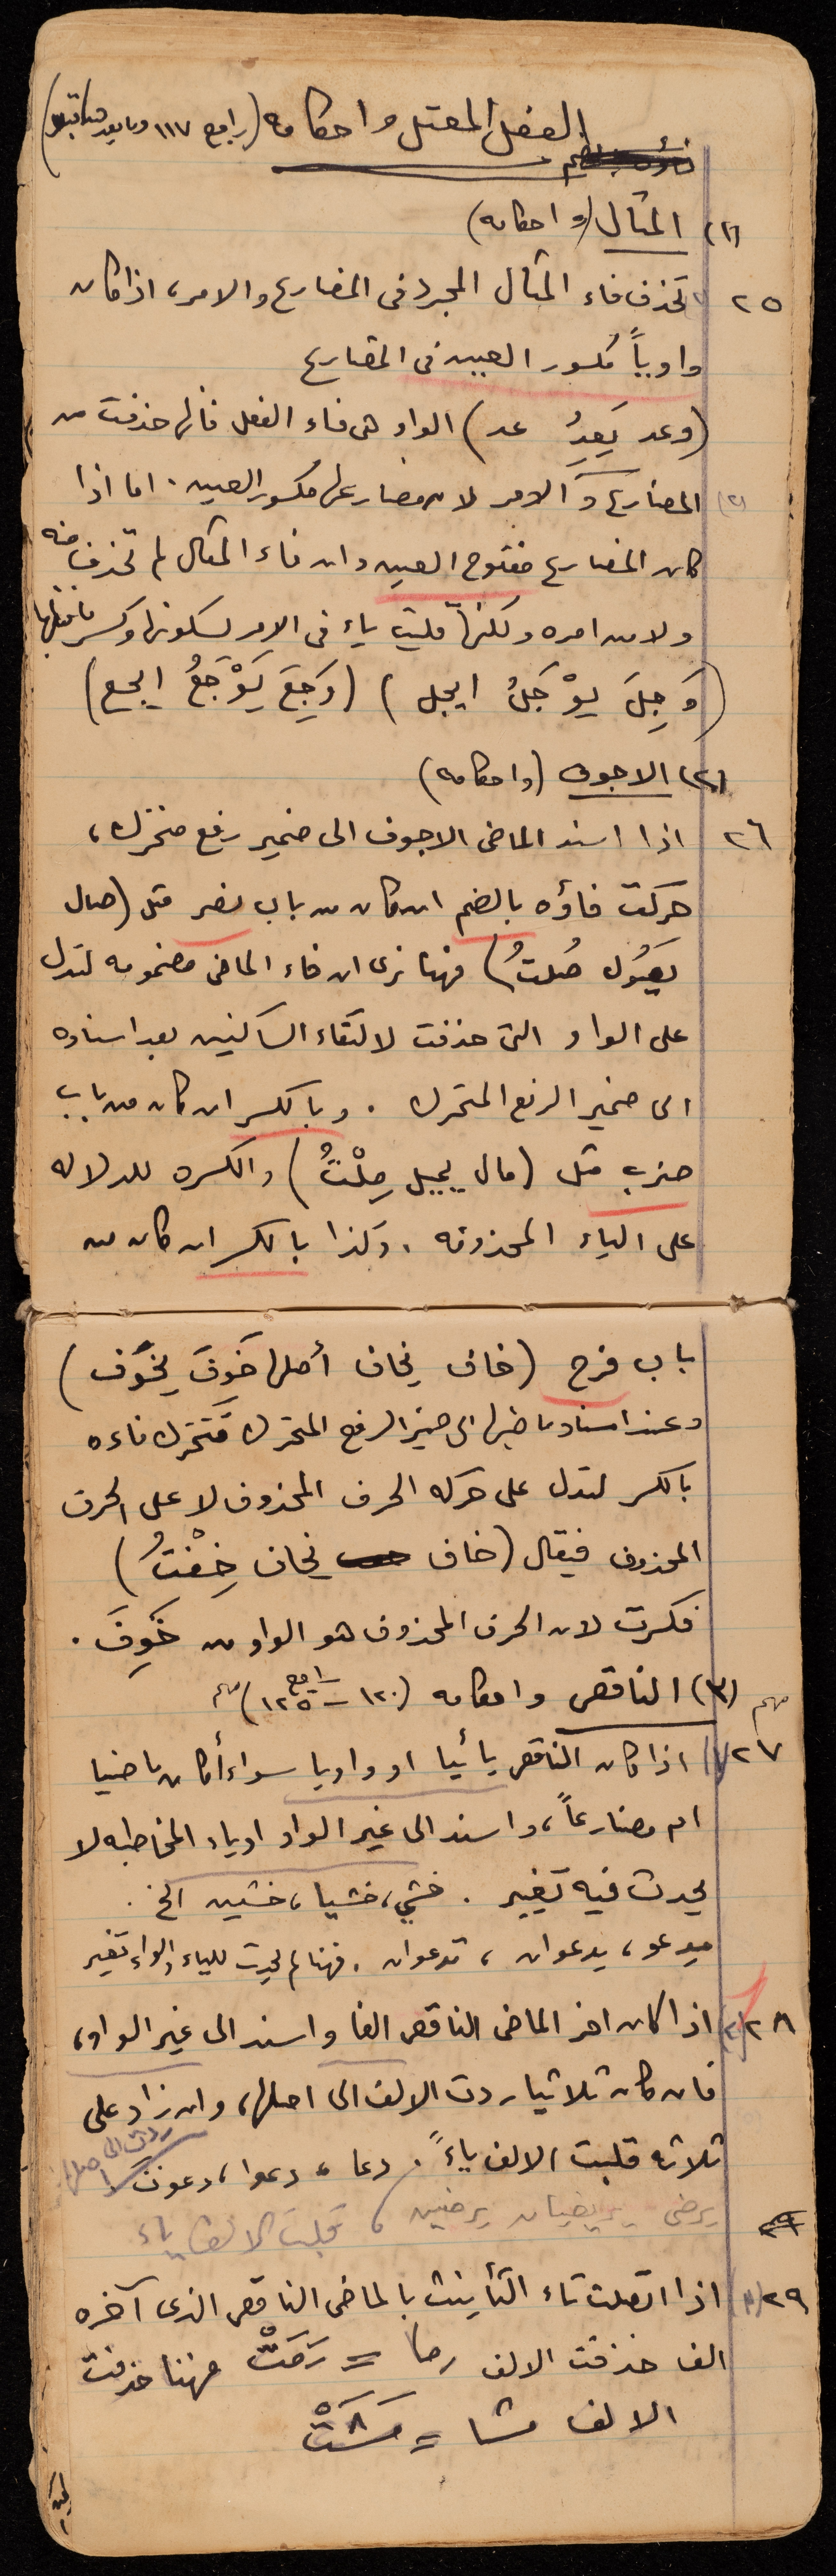 الفعل المعتل واحكامه (راجع ١١٧ وما بعد)
(١) المثال (واحكامه)
٢٥ تحذف فاء المثال المجرد فى المضارع والامر، اذا كان
واوياً مكسور العين فى المضارع
(وعد يَعِدُ عد) الواو هى فاء الفعل فانها حذفت من
المضارع والامر لان مضارعها مكسور العين . اما اذا
كان المضارع مفتوح العين وان فاء المثال لم تحذف منه
ولا من امره ولكنها قلبت ياء فى الامر لسكونها وكسر ما قبلها
(وَجِلَ يوْجَلُ ايجل) (وَجِعَ يَوْجَعُ ايجع)
(٢) الاجوف (واحكامه)
٢٦ اذا اسند الماضى الاجوف الى ضمير رفع متحرك،
حركت فاؤه بالضم ان كان من باب نصر مثل (صال
يصُول صُلتُ) فهنا نرى ان فاء الماضى مضمومه لتدل
على الواو التى حذفت لالتقاء الساكنين بعد اسناده
الى ضمير الرفع المتحرك . وبالكسر ان كان من باب
ضرب مثل (مال يميل مِلْتُ) والكسره للدلاله
على الياء المحذوفه . وكذا بالكسر ان كان من
باب فرح (خاف يخاف أصلها خَوِفَ يخوَف)
وعند اسناد ماضيها الى ضمير الرفع المتحرك تتحرك فاءه
بالكسر لتدل على حركه الحرف المحذوف لا على الحرف
المحذوف فيقال (خاف يخاف خِفْتُ)
فكسرت لان الحرف المحذوف هو الواو من خَوِفَ .
مهم (٣) الناقص واحكامه (راجع ١٢٠ – ١٢٥) مهم
٢٧ (١) اذا كان الناقص يائيا او واويا سواء أكان ماضيا
ام مضارعاً، واسند الى غير الواو او ياء المخاطبه لا
يحدث فيه تغيير . خشي، خشيا، خشين الخ .
يدعو، يدعوان، تدعوان . فهنا لم يحدث للياء والواو تغير
٢٨ (٢) اذا كان اخر الماضى الناقص الفا واسند الى غير الواو،
فان كان ثلاثيا ردت الالف الى اصلها، وان زاد على
ثلاثه قلبت الالف ياءً . دعا، دعوا، دعوت ردت الى اصلها
يرضى يرضيان يرضين، قلبت الالف ياء
٢٩ (٣) اذا اتصلت تاء التأنيث بالماضى الناقص الذى آخره
الف حذفت الالف رما = رَمَتْ فهنا حذفت
الالف مشا = مَشَتْ